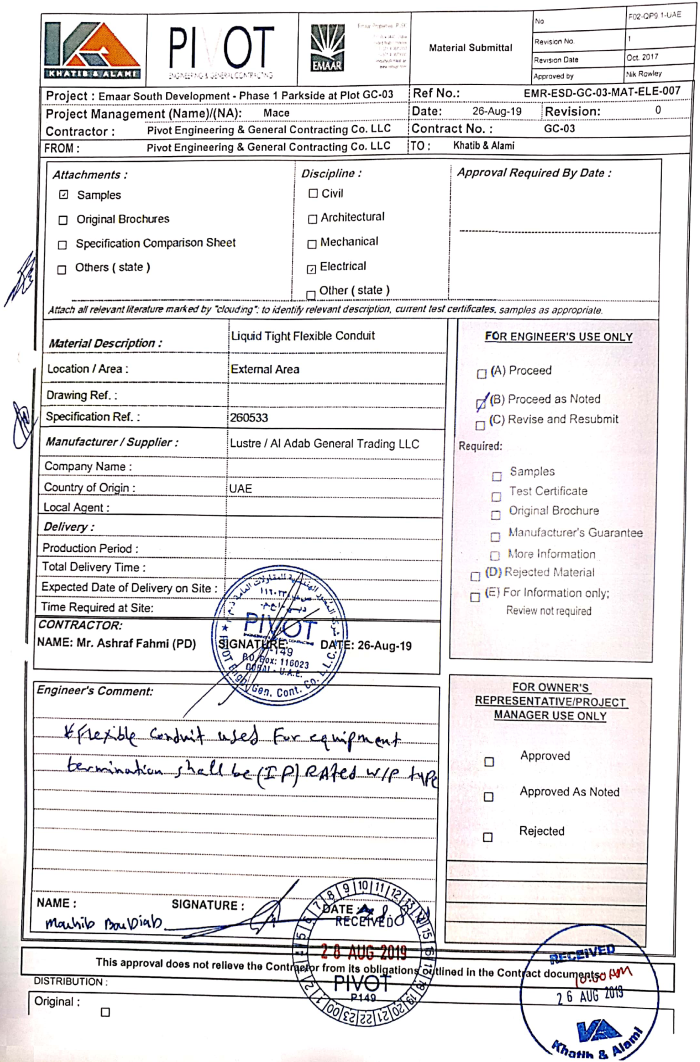 KHATIB & ALAMI
PIVOT
ENGINEERING & GENERAL CONTRACTING
EMAAR
Material Submittal
No
F02-QP9.1-UAE
Revision No.
1
Revision Date
Oct. 2017
Approved by
Nik Rowley
Project : Emaar South Development - Phase 1 Parkside at Plot GC-03
Ref No.: EMR-ESD-GC-03-MAT-ELE-007
Project Management (Name)/(NA): Mace
Date: 26-Aug-19 Revision: 0
Contractor : Pivot Engineering & General Contracting Co. LLC
Contract No. : GC-03
FROM : Pivot Engineering & General Contracting Co. LLC
TO : Khatib & Alami
Attachments :
☑ Samples
☐ Original Brochures
☐ Specification Comparison Sheet
☐ Others ( state )
Discipline :
☐ Civil
☐ Architectural
☐ Mechanical
☑ Electrical
☐ Other ( state )
Approval Required By Date :
Attach all relevant literature marked by "clouding": to identify relevant description, current test certificates, samples as appropriate.
Material Description : Liquid Tight Flexible Conduit
Location / Area : External Area
Drawing Ref. :
Specification Ref. : 260533
Manufacturer / Supplier : Lustre / Al Adab General Trading LLC
Company Name :
Country of Origin : UAE
Local Agent :
Delivery :
Production Period :
Total Delivery Time :
Expected Date of Delivery on Site :
Time Required at Site:
CONTRACTOR:
NAME: Mr. Ashraf Fahmi (PD) SIGNATURE: DATE: 26-Aug-19
PIVOT
P.O. Box: 116023
DUBAI - U.A.E.
PIVOT Engg. Gen. Cont. Co. L.L.C.
FOR ENGINEER'S USE ONLY
☐ (A) Proceed
☑ (B) Proceed as Noted
☐ (C) Revise and Resubmit
Required:
☐ Samples
☐ Test Certificate
☐ Original Brochure
☐ Manufacturer's Guarantee
☐ More Information
☐ (D) Rejected Material
☐ (E) For Information only;
Review not required
Engineer's Comment:
* Flexible Conduit used For equipment
termination shall be (IP) RATed W/P type
NAME : SIGNATURE : DATE
Mouhib BouDiab
RECEIVED
28 AUG 2019
PIVOT
P149
FOR OWNER'S
REPRESENTATIVE/PROJECT
MANAGER USE ONLY
☐ Approved
☐ Approved As Noted
☐ Rejected
This approval does not relieve the Contractor from its obligations outlined in the Contract documents
DISTRIBUTION :
Original : ☐
RECEIVED
10:00 AM
26 AUG 2019
Khatib & Alami